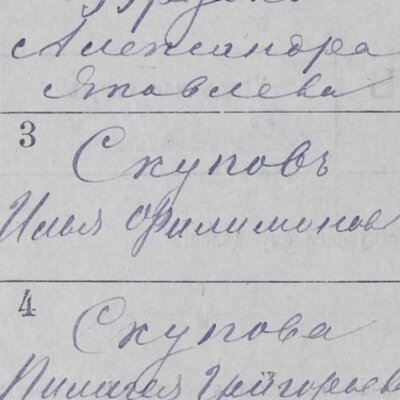 Александра
Яковлева
3
Скуповъ
Илья Филимонов
4
Скупова
Пилагея Григорьев